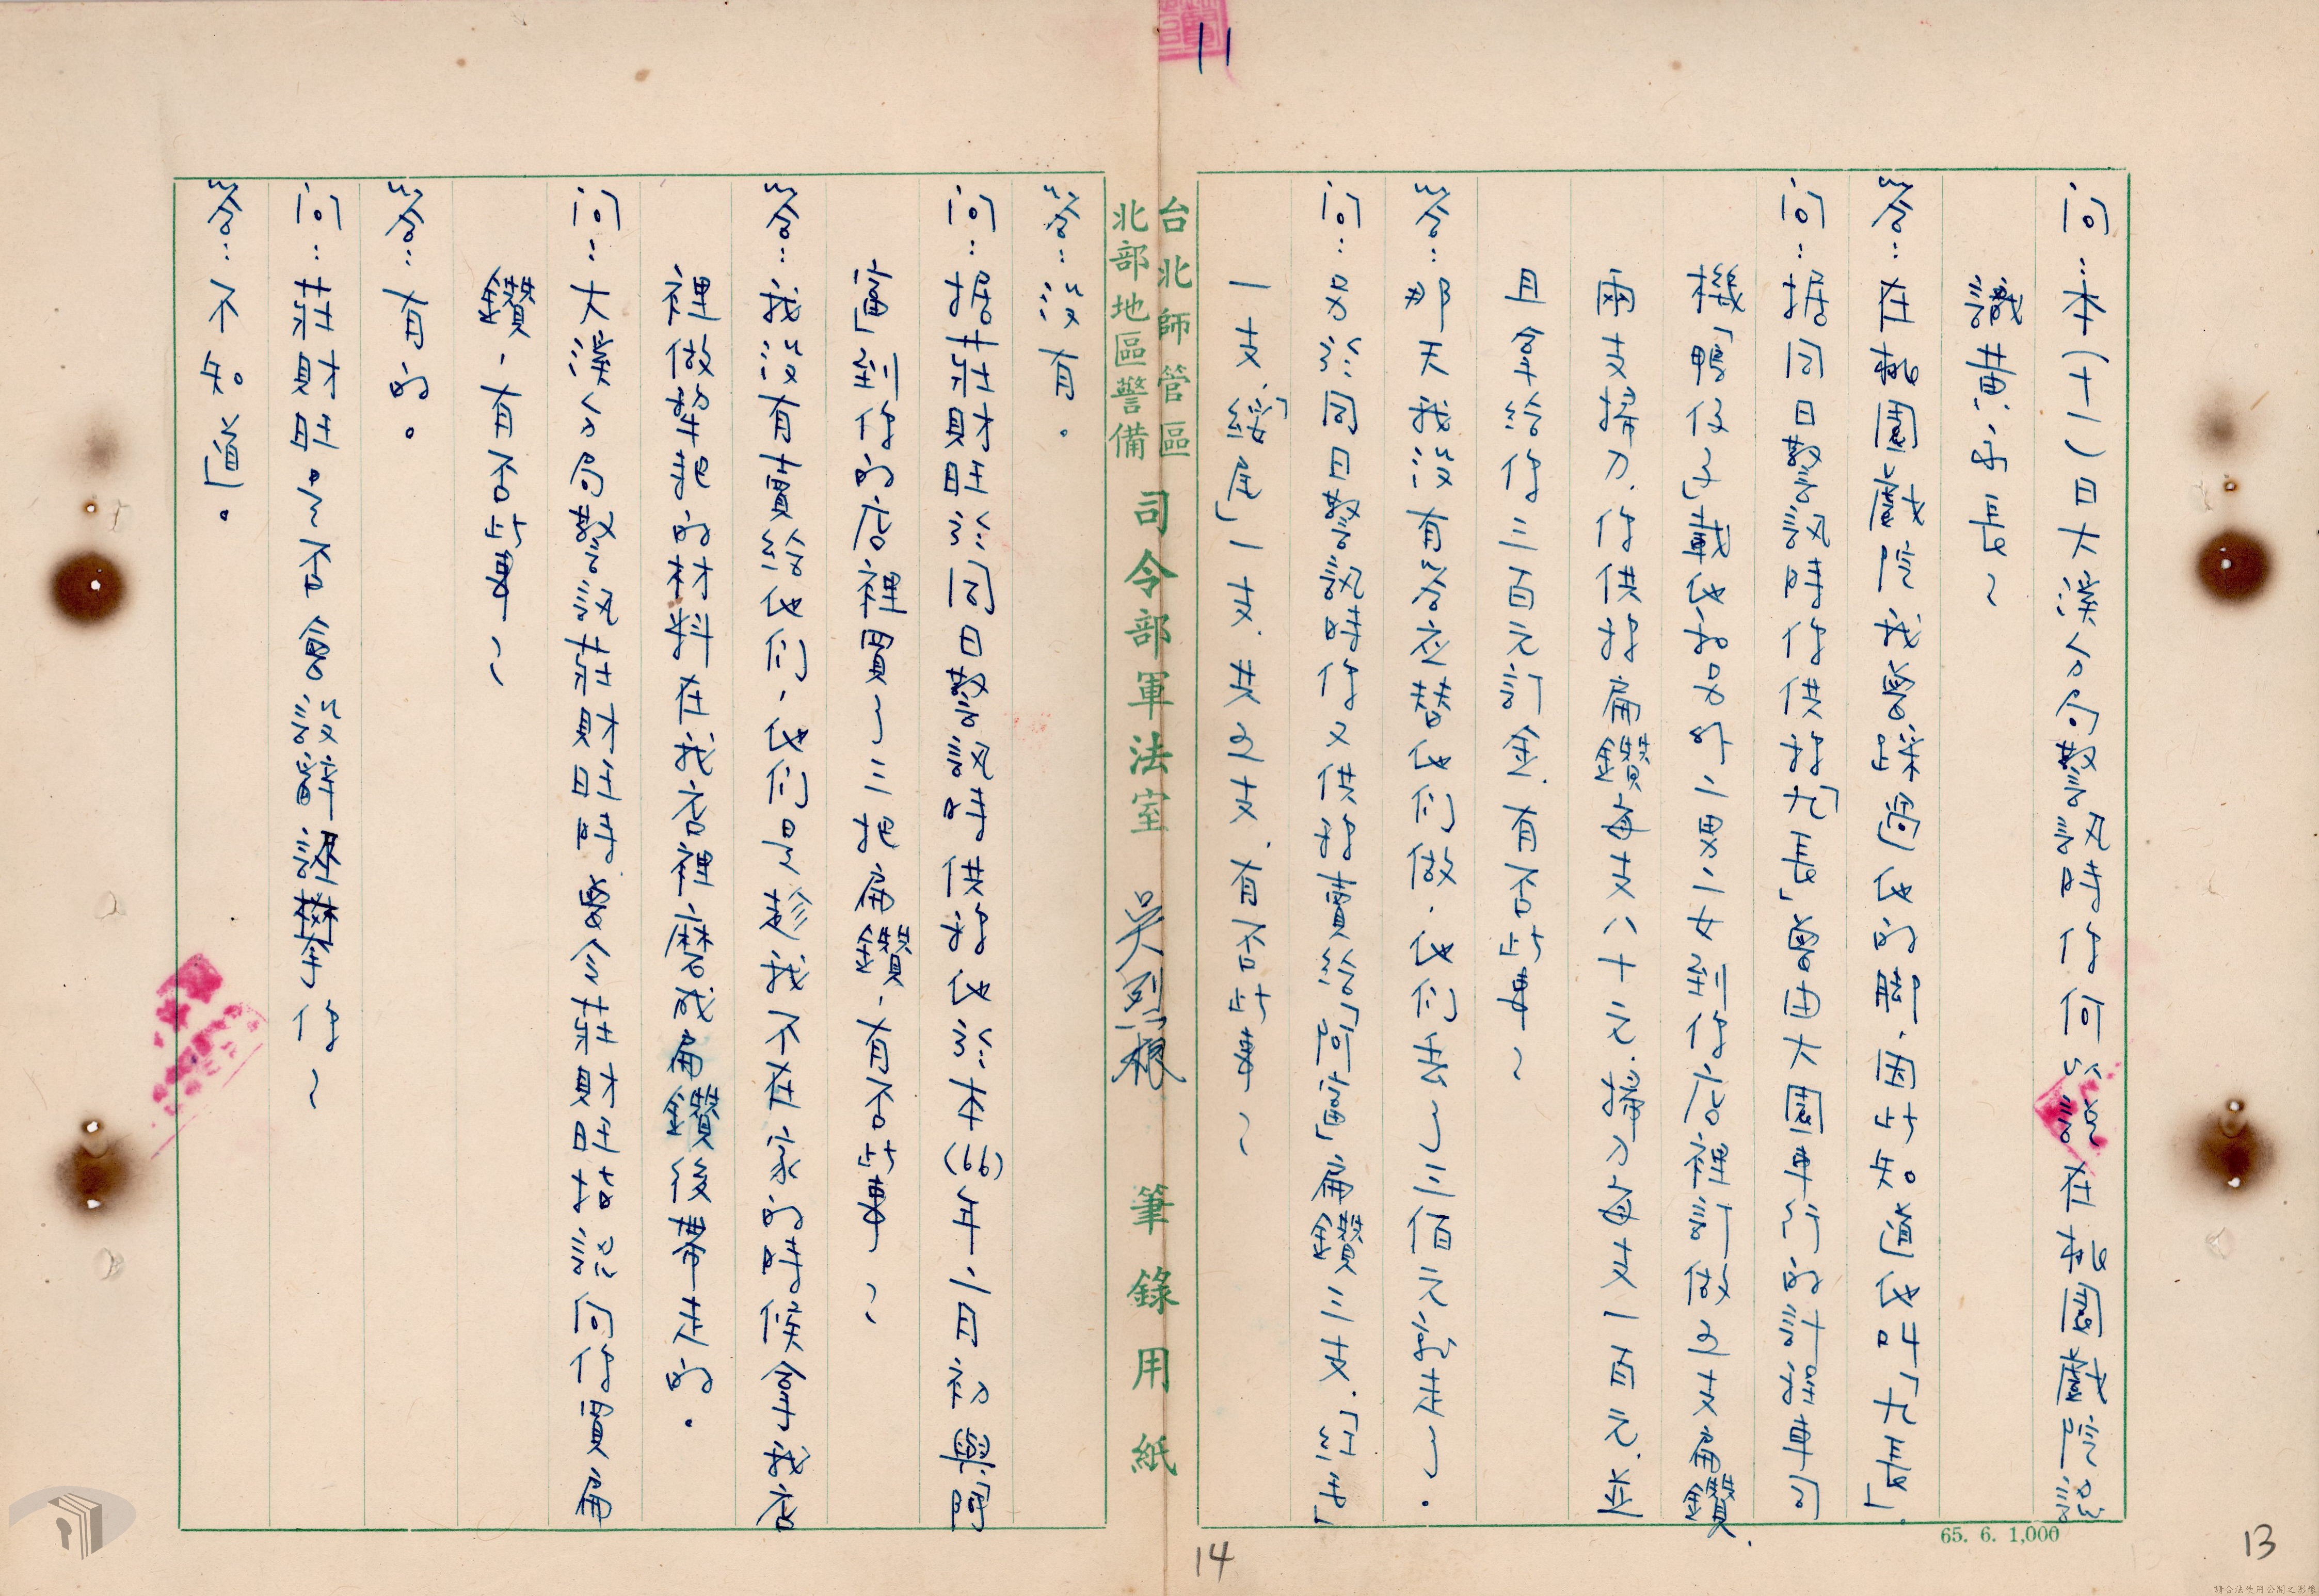 11
问：本(十一)日大溪分局警訊時你何以說在桃園戲院認
識黃永長～
答：在桃園戲院我曾採過他的攤，因此知道他叫「尤長」。
问：据同日警訊時你供稱「尤長」曾由大園車行的計程車司
機「鴨仪仔」載他和另外二男二女到你店裡訂做四支扁鑽，
兩支掃刀，你供稱扁鑽每支八十元，掃刀每支一百元，並
且拿給你三百元訂金，有否此事～
答：那天我沒有答应替他们做，他们丟了三佰元就走了。
问：另外同日警訊時你又供稱賣給
一支，共四支，有否此事～
台北師管區
北部地區警備
司令部軍法室
筆錄用紙
答：沒有。
问：据莊財旺於同日警訊時供稱他於本(66)年二月初與
到你的店裡買了三把扁鑽，有否此事～
答：我沒有賣給他们，他们是趁我不在家的時候拿我店
裡做犂耙的材料在我店裡磨成扁鑽後帶走的。
问：大溪分局警訊莊財旺時曾令莊財旺當
扁
鑽，有否此事～
答：有的。
问：莊財旺
答：不知道。
65. 6. 1,000
13
14
請合法使用公開之影像